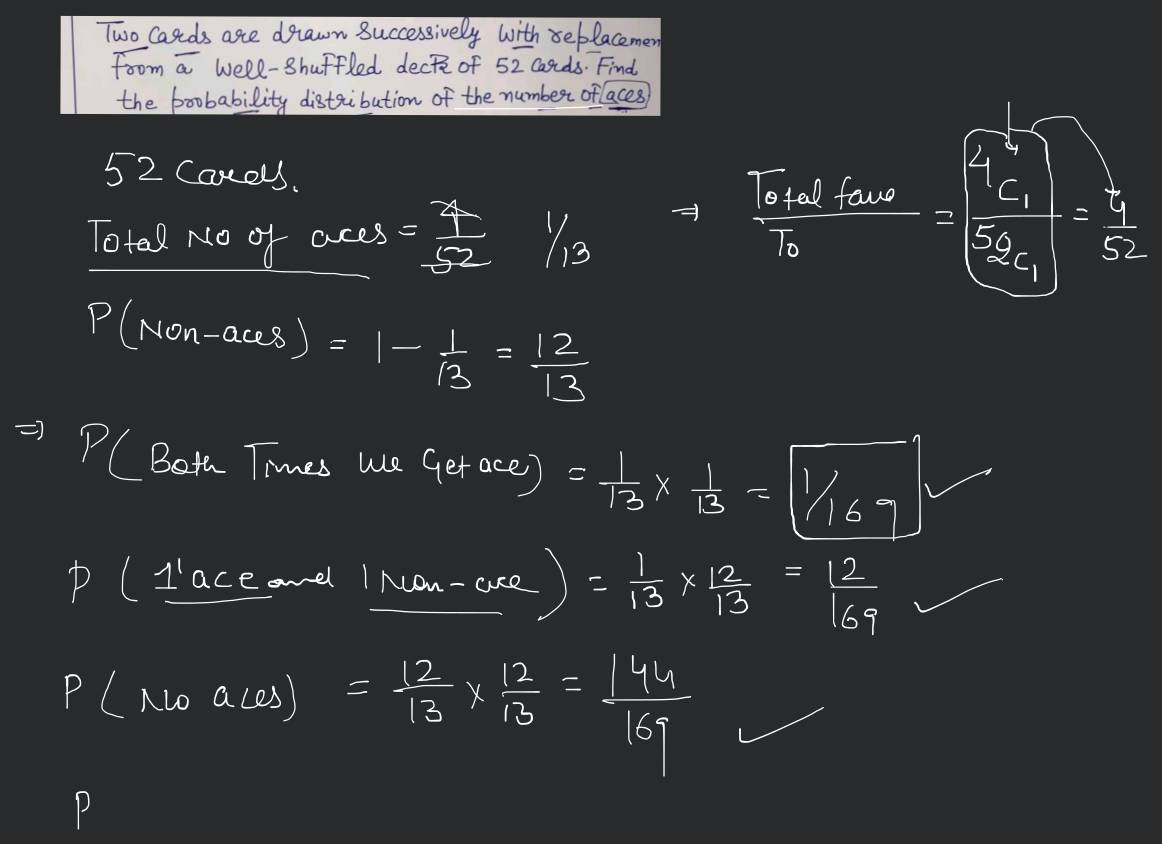 Two cards are drawn successively with replacemen
from a well-shuffled deck of 52 cards. Find
the probability distribution of the number of aces
52 Cards.
Total No of aces = 4/52 1/13
⇒ Total favo/To = 4C1/52C1 = 4/52
P(Non-aces) = 1 - 1/13 = 12/13
⇒ P(Both Times we Get ace) = 1/13 × 1/13 = 1/169 ✓
P (1 ace and 1 Non-ace) = 1/13 × 12/13 = 12/169 ✓
P (No aces) = 12/13 × 12/13 = 144/169 ✓
P